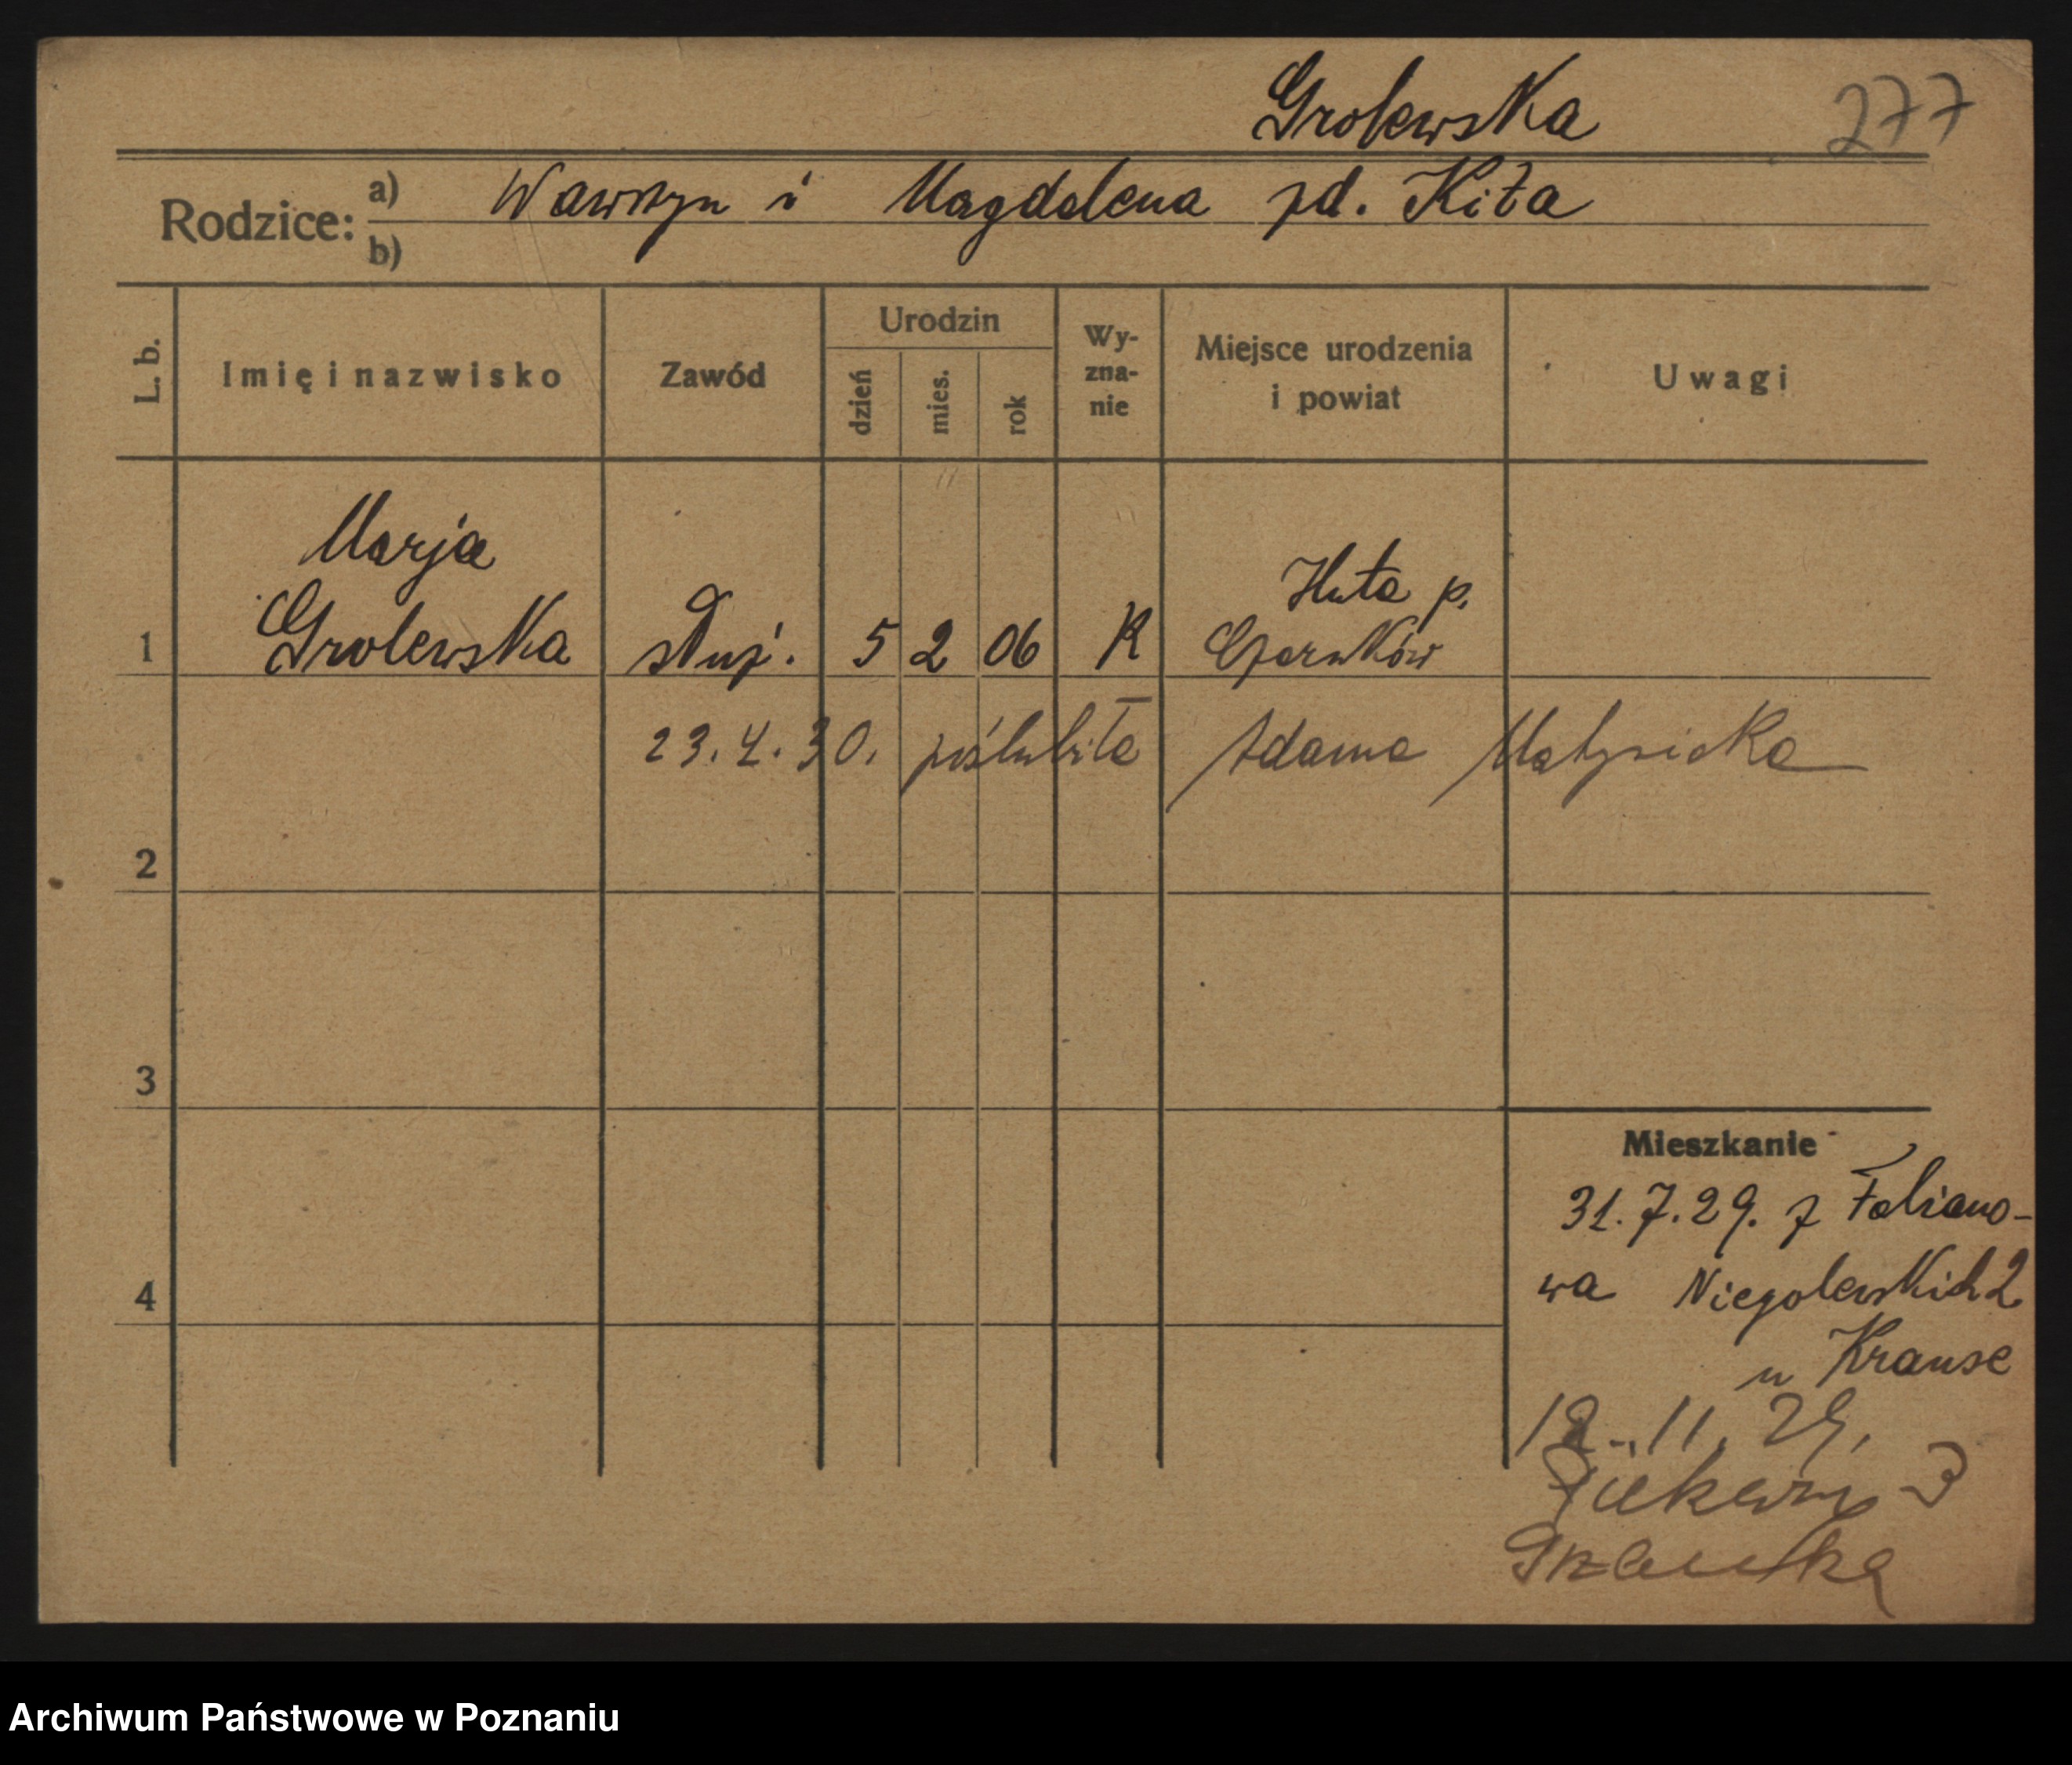 Grolewska 277
Rodzice: a) Wawrzyn i Magdalena zd. Kita
b)
L. b. Imię i nazwisko Zawód Urodzin dzień mies. rok Wy-zna-nie Miejsce urodzenia i powiat Uwagi
Marja
Huta p.
1 Grolewska służ. 5 2 06 K Czarnków
23.4.30. poślubiła Adama Matysiaka
2
3
Mieszkanie
31.7.29. z Fabiano-
4 wa Niegolewskich 2
u Krause
12.11.29.
Piekary 3